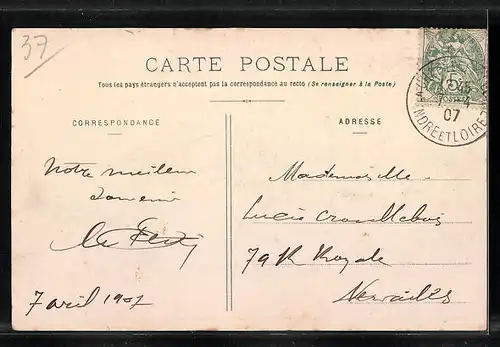 37
CARTE POSTALE
Tous les pays étrangers n'acceptent pas la correspondance au recto (Se renseigner à la Poste)
CORRESPONDANCE
ADRESSE
07
INDRE ET LOIRE
Notre meilleur
souvenir
7 avril 1907
Mademoiselle
Lucie
79 R Royale
Versailles